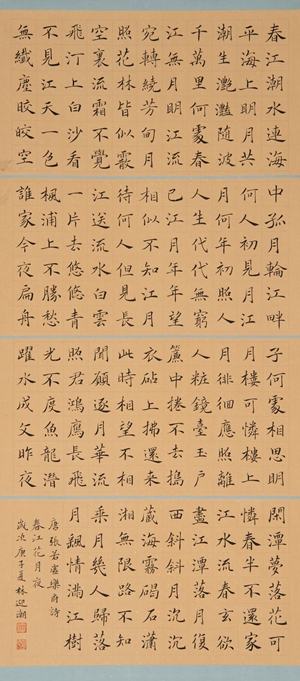 春江潮水連海
平海上明月共
潮生灩灩隨波
千萬里何處春
江無月明江流
宛轉繞芳甸月
照花林皆似霰
空裏流霜不覺
飛汀上白沙看
不見江天一色
無纖塵皎皎空
中孤月輪江畔
何人初見月江
月何年初照人
人生代代無窮
已江月年年望
相似不知江月
待何人但見長
江送流水白雲
一片去悠悠青
楓浦上不勝愁
誰家今夜扁舟
子何處相思明
月樓可憐樓上
月徘徊應照離
人粧鏡臺玉戶
簾中捲不去搗
衣砧上拂還來
此時相望不相
聞願逐月華流
照君鴻鴈長飛
光不度魚龍潛
躍水成文昨夜
閑潭夢落花可
憐春半不還家
江水流春去欲
盡江潭落月復
西斜斜月沉沉
藏海霧碣石瀟
湘無限路不知
乘月幾人歸落
月搖情滿江樹
唐張若虛樂府詩
春江花月夜
歲次庚子夏林迎潮